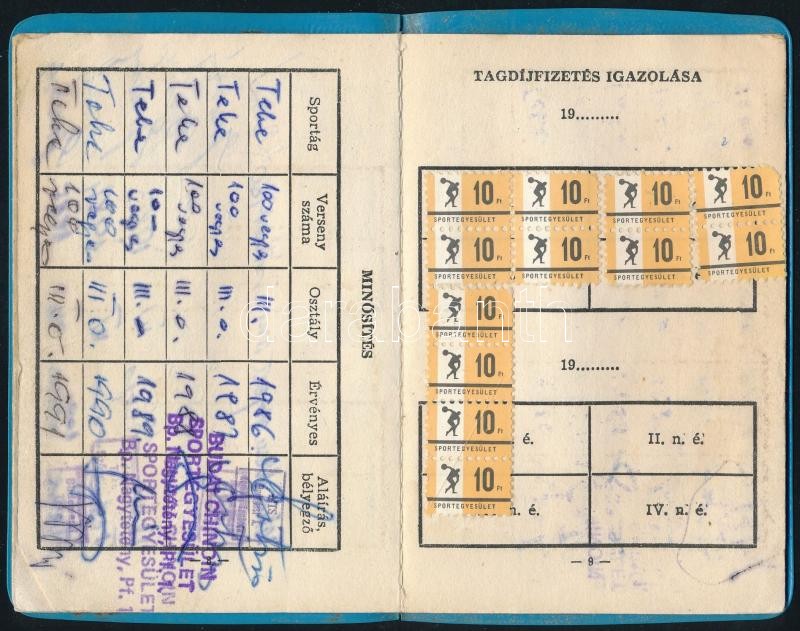 MINŐSÍTÉS
Sportág Verseny száma Osztály Érvényes Aláírás, bélyegző
Teke 100 vegyes III. 1986
Teke 100 vegyes III. o. 1987
Teke 100 vegyes III. o. 1988
Teke 100 vegyes III. o. 1989
Teke 100 vegyes III. o. 1990
Teke 100 vegyes III. o. 1991
BUDAI CHINOIN
SPORTEGYESÜLET
Bp. Nagytétény, Pf. 1
SPORTEGYESÜLET
Bp. Nagytétény, Pf. 1
TAGDÍJFIZETÉS IGAZOLÁSA
19.........
10 Ft 10 Ft 10 Ft 10 Ft
SPORTEGYESÜLET SPORTEGYESÜLET SPORTEGYESÜLET SPORTEGYESÜLET
10 Ft 10 Ft 10 Ft 10 Ft
SPORTEGYESÜLET SPORTEGYESÜLET SPORTEGYESÜLET SPORTEGYESÜLET
10 Ft
SPORTEGYESÜLET
10 Ft
SPORTEGYESÜLET
19.........
10 Ft
SPORTEGYESÜLET
10 Ft
SPORTEGYESÜLET
é. II. n. é.
n. é. IV. n. é.
— 9 —
darabanth